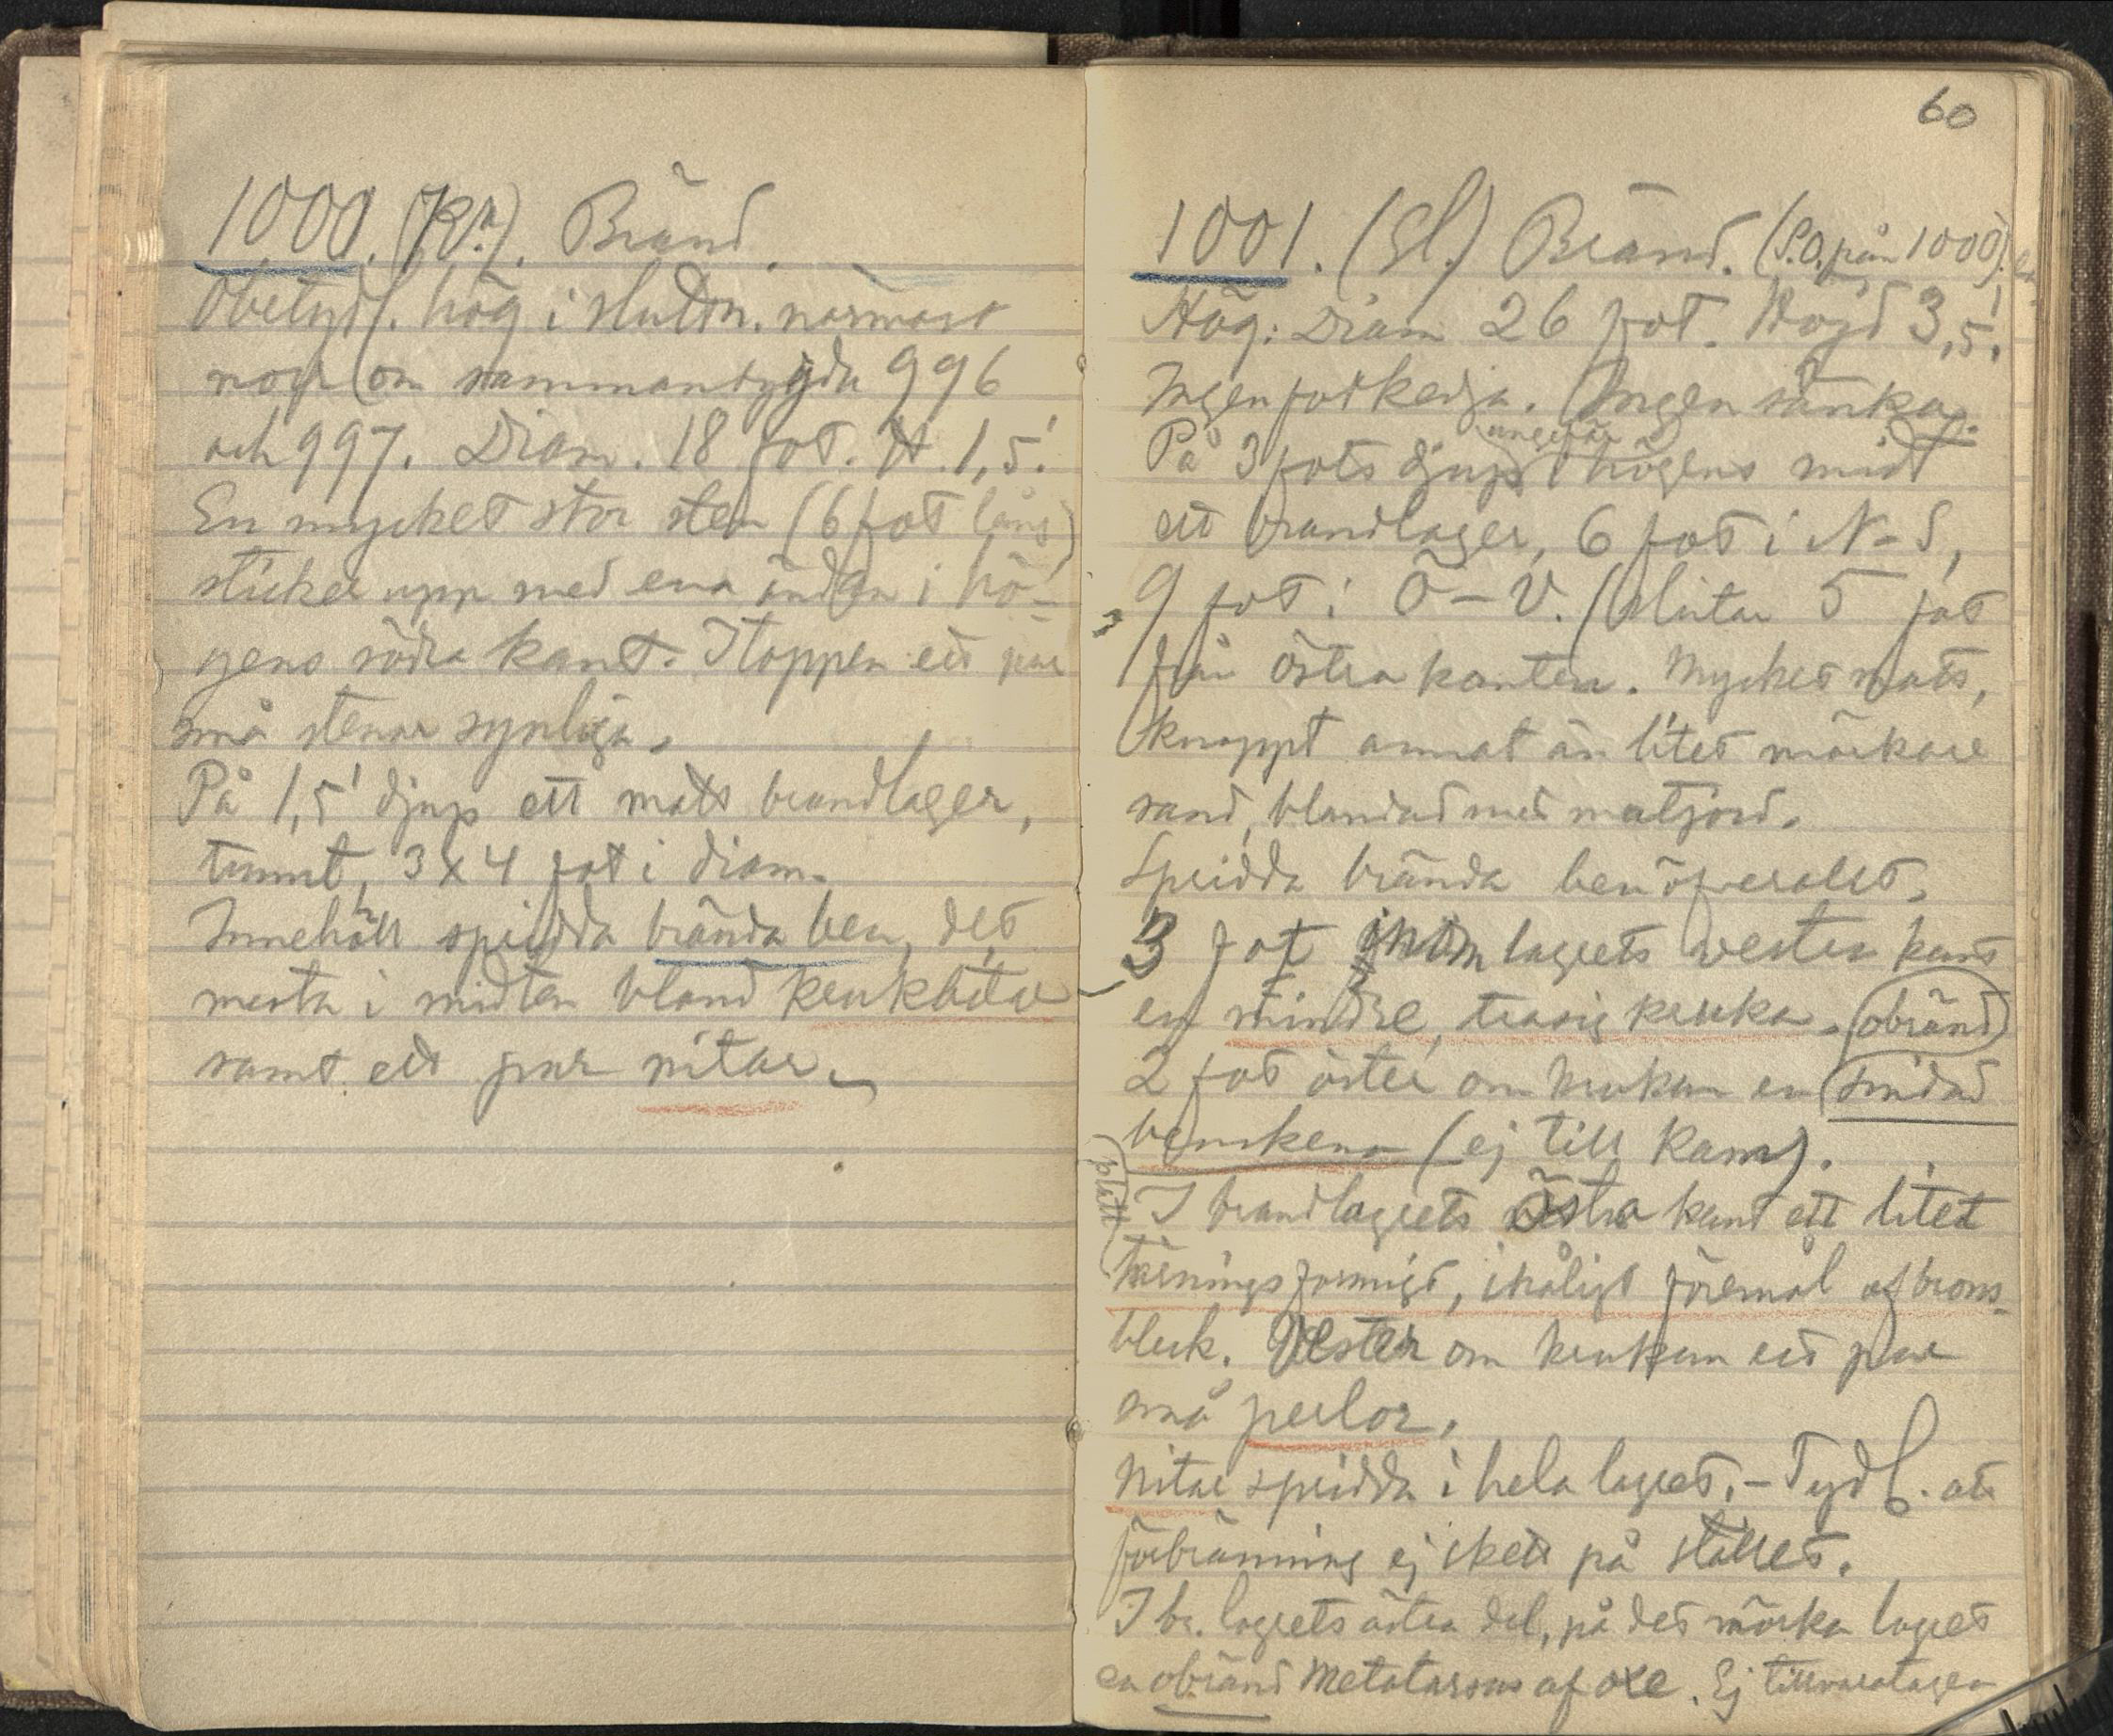 1000. (Kr.). Bränd.
Obetydl. hög i sluttn. närmast
norr om sammanbygda 996
och 997. Diam. 18 fot. H. 1,5'.
En mycket stor sten (6 fot lång)
sticker upp med ena ändan i hö-
gens södra kant. I toppen ett par
små stenar synliga.
På 1,5' djup ett matt brandlager,
tunnt, 3 x 4 fot i diam.
Innehöll spridda brända ben, det
mesta i midten bland krukbitar
samt ett par nitar.
60
1001. (Gl.) Bränd. (S.O. från 1000).
Hög: Diam 26 fot. Höjd 3,5'.
Ingen fotkedja. Ingen sänka.
På 3 fots djup ungefär i högens midt
ett brandlager, 6 fot i N-S,
9 fot i Ö-V. (slutar 5 fot
från östra kanten. Mycket matt,
knappt annat än litet mörkare
sand, blandad med matjord.
Spridda brända ben öfverallt.
3 fot inom lagrets vestra kant
en mindre, trasig kruka. (obränd)
2 fot öster om krukan en sirad
benskena (ej till kam).
I brandlagrets östra kant ett litet
(platt)
tärningsformigt, ihåligt föremål af brons-
bleck. Vester om krukan ett par
små perlor.
Nitar spridda i hela lagret. - Tydl. att
förbränning ej skett på stället.
I br. lagrets östra del, på det mörka lagret
en obränd Metatarsus af oxe. Ej tillvaratagen